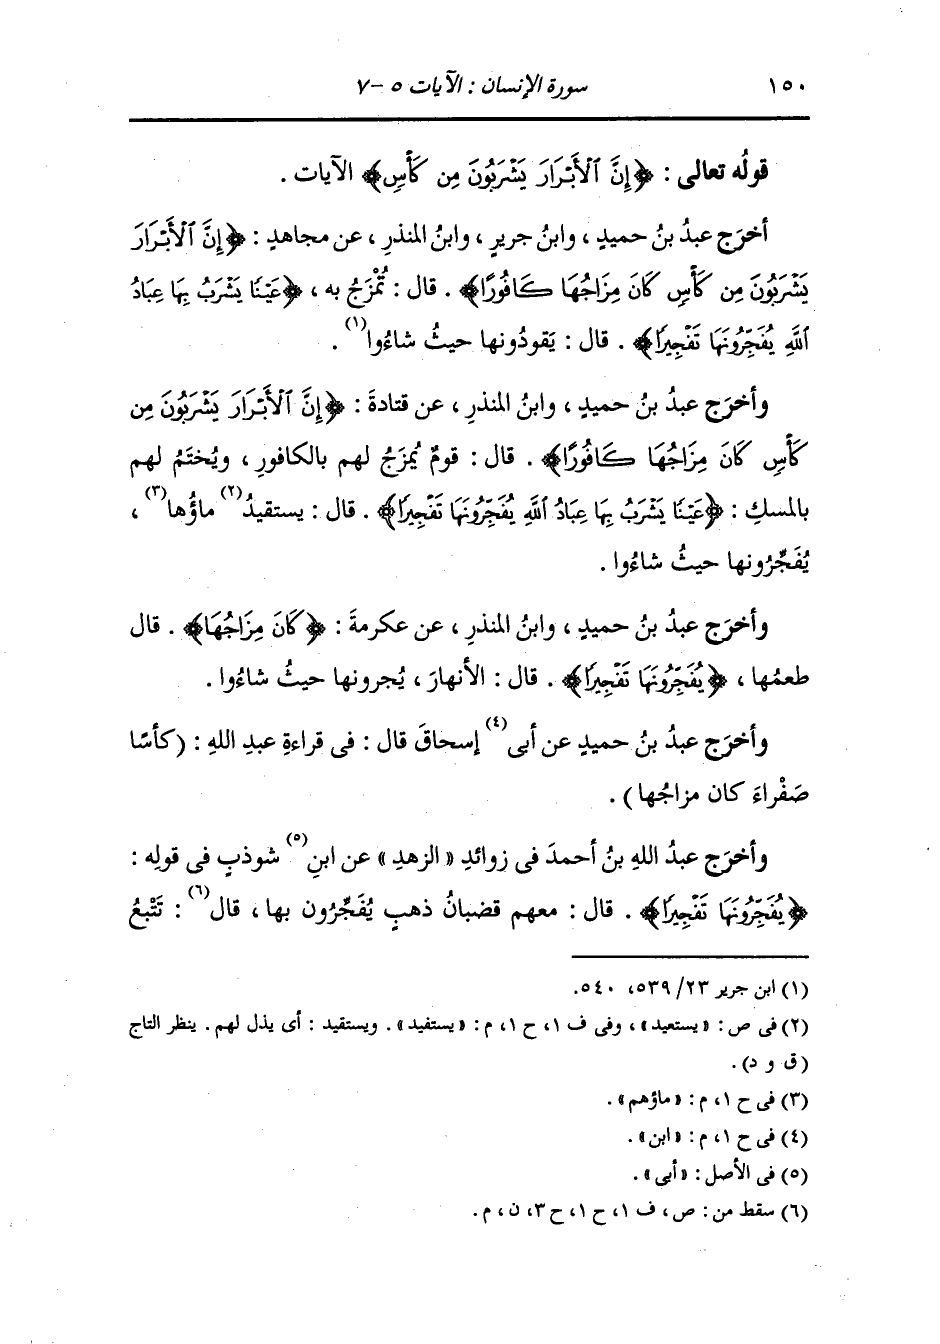 ١٥٠ سورة الإنسان : الآيات ٥ -٧
قولُه تعالى : ﴿إِنَّ ٱلْأَبْرَارَ يَشْرَبُونَ مِن كَأْسٍ﴾ الآيات .
أخرَج عبدُ بنُ حميدٍ ، وابنُ جريرٍ ، وابنُ المنذرِ ، عن مجاهدٍ : ﴿إِنَّ ٱلْأَبْرَارَ
يَشْرَبُونَ مِن كَأْسٍ كَانَ مِزَاجُهَا كَافُورًا﴾ . قال : تُمْزَجُ به ، ﴿عَيْنًا يَشْرَبُ بِهَا عِبَادُ
ٱللَّهِ يُفَجِّرُونَهَا تَفْجِيرًا﴾ . قال : يَقودُونها حيثُ شاءُوا(١) .
وأخرَج عبدُ بنُ حميدٍ ، وابنُ المنذرِ ، عن قتادةَ : ﴿إِنَّ ٱلْأَبْرَارَ يَشْرَبُونَ مِن
كَأْسٍ كَانَ مِزَاجُهَا كَافُورًا﴾ . قال : قومٌ يُمزَجُ لهم بالكافورِ ، ويُختَمُ لهم
بالمسكِ : ﴿عَيْنًا يَشْرَبُ بِهَا عِبَادُ ٱللَّهِ يُفَجِّرُونَهَا تَفْجِيرًا﴾ . قال : يستقيدُ(٢) ماؤُها(٣) ،
يُفَجِّرُونها حيثُ شاءُوا .
وأخرَج عبدُ بنُ حميدٍ ، وابنُ المنذرِ ، عن عكرمةَ : ﴿كَانَ مِزَاجُهَا﴾ . قال
طعمُها ، ﴿يُفَجِّرُونَهَا تَفْجِيرًا﴾ . قال : الأنهارَ ، يُجرونها حيثُ شاءُوا .
وأخرَج عبدُ بنُ حميدٍ عن أبى(٤) إسحاقَ قال : فى قراءةِ عبدِ اللهِ : (كأسًا
صَفْراءَ كان مزاجُها) .
وأخرَج عبدُ اللهِ بنُ أحمدَ فى زوائدِ « الزهدِ » عن ابنِ(٥) شوذبٍ فى قولِه :
﴿يُفَجِّرُونَهَا تَفْجِيرًا﴾ . قال : معهم قضبانُ ذهبٍ يُفَجِّرُون بها ، قال(٦) : تَتْبعُ
(١) ابن جرير ٢٣/ ٥٣٩، ٥٤٠.
(٢) فى ص : « يستعيد » ، وفى ف ١، ح ١، م : « يستفيد » . ويستقيد : أى يذل لهم . ينظر التاج
(ق و د) .
(٣) فى ح ١، م : « ماؤهم » .
(٤) فى ح ١، م : « ابن » .
(٥) فى الأصل : « أبى » .
(٦) سقط من : ص ، ف ١، ح ١، ح ٣، ن ، م .